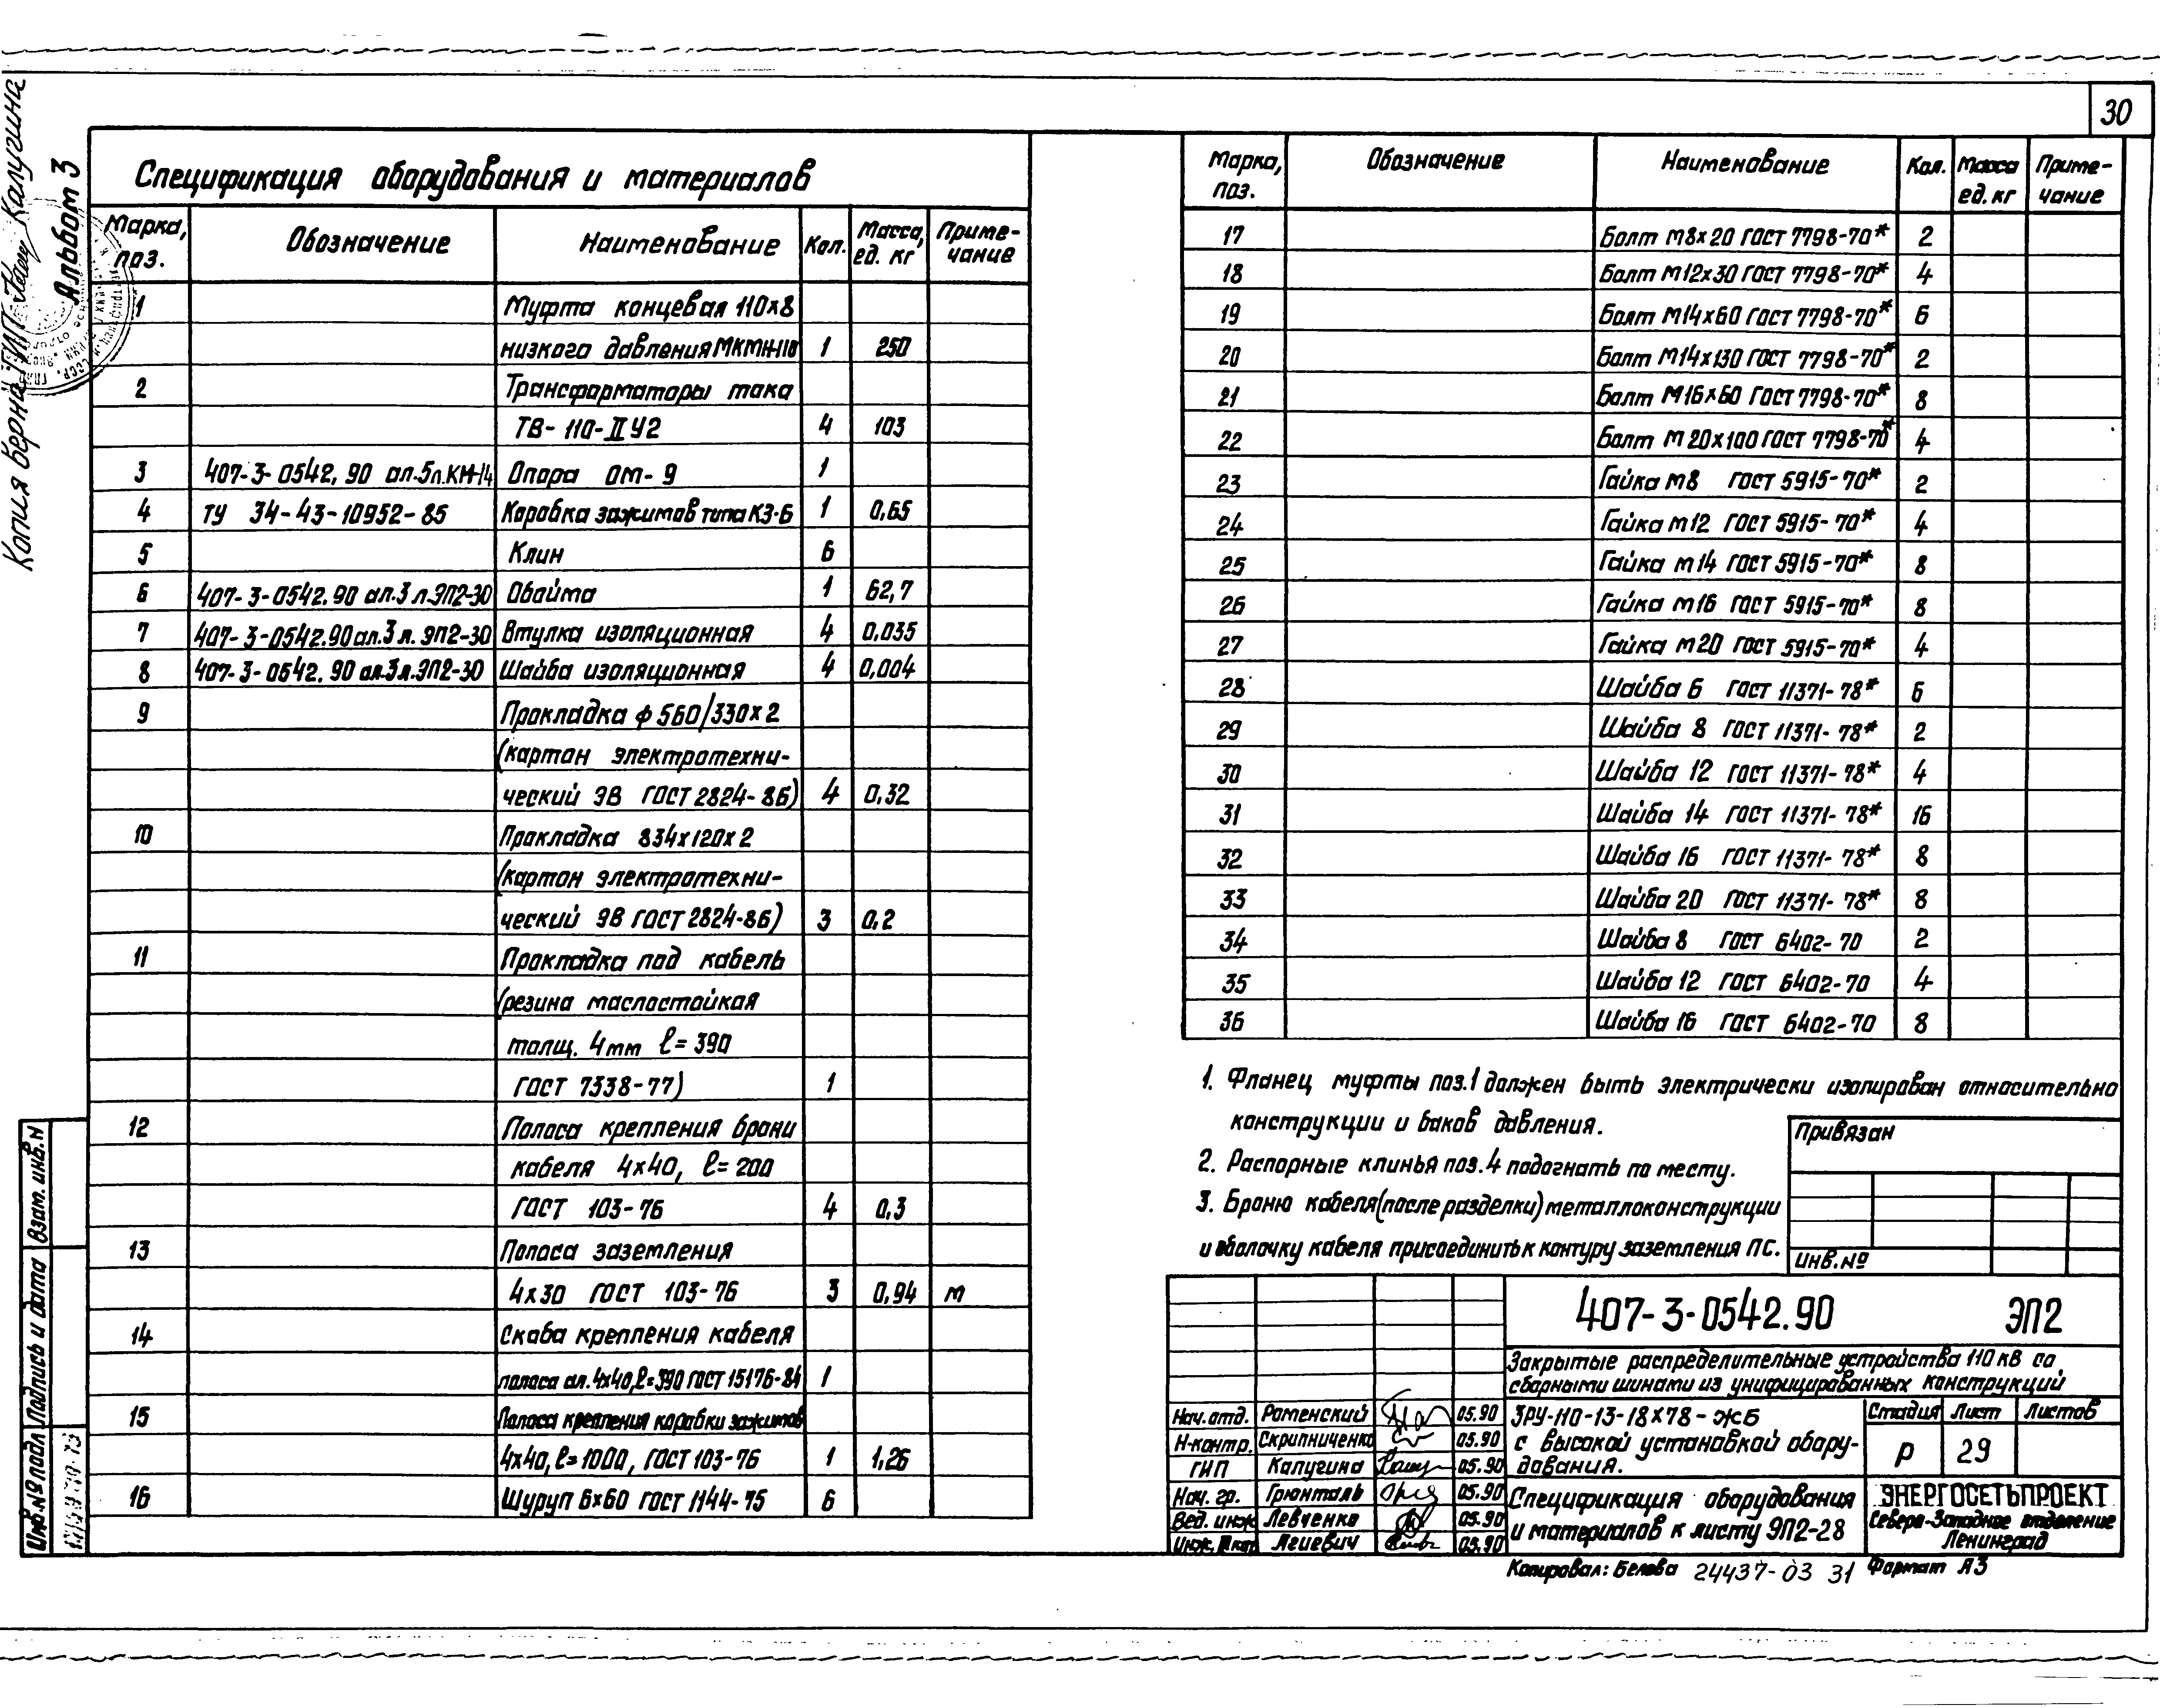 30
Копия верна ГИП Калугина
Альбом 3
Спецификация оборудования и материалов
Марка, поз. Обозначение Наименование Кол. Масса, ед. кг Приме-чание
1 Муфта концевая 110х8
низкого давления МКТН-110 1 250
2 Трансформаторы тока
ТВ-110-II У2 4 103
3 407-3-0542.90 ал.5л.КМ-14 Опора ОМ-9 1
4 ТУ 34-43-10952-85 Коробка зажимов типа КЗ-6 1 0,65
5 Клин 6
6 407-3-0542.90 ал.3 л.ЭП2-30 Обойма 1 62,7
7 407-3-0542.90 ал.3 л. ЭП2-30 Втулка изоляционная 4 0,035
8 407-3-0542.90 ал.3л.ЭП2-30 Шайба изоляционная 4 0,004
9 Прокладка ф 560/330х2
(картон электротехни-
ческий ЭВ ГОСТ 2824-86) 4 0,32
10 Прокладка 834х120х2
(картон электротехни-
ческий ЭВ ГОСТ 2824-86) 3 0,2
11 Прокладка под кабель
(резина маслостойкая
толщ. 4мм ℓ=390
ГОСТ 7338-77) 1
12 Полоса крепления брони
кабеля 4х40, ℓ=200
ГОСТ 103-76 4 0,3
13 Полоса заземления
4х30 ГОСТ 103-76 3 0,94 м
14 Скоба крепления кабеля
полоса ал. 4х40,ℓ=390 ГОСТ 15176-84 1
15 Полоса крепления коробки зажимов
4х40, ℓ=1000, ГОСТ 103-76 1 1,26
16 Шуруп 6х60 ГОСТ 1144-75 6
Марка, поз. Обозначение Наименование Кол. Масса ед. кг Приме-чание
17 Болт М8х20 ГОСТ 7798-70* 2
18 Болт М12х30 ГОСТ 7798-70* 4
19 Болт М14х60 ГОСТ 7798-70* 6
20 Болт М14х130 ГОСТ 7798-70* 2
21 Болт М16х60 ГОСТ 7798-70* 8
22 Болт М20х100 ГОСТ 7798-70* 4
23 Гайка М8 ГОСТ 5915-70* 2
24 Гайка М12 ГОСТ 5915-70* 4
25 Гайка М14 ГОСТ 5915-70* 8
26 Гайка М16 ГОСТ 5915-70* 8
27 Гайка М20 ГОСТ 5915-70* 4
28 Шайба 6 ГОСТ 11371-78* 6
29 Шайба 8 ГОСТ 11371-78* 2
30 Шайба 12 ГОСТ 11371-78* 4
31 Шайба 14 ГОСТ 11371-78* 16
32 Шайба 16 ГОСТ 11371-78* 8
33 Шайба 20 ГОСТ 11371-78* 8
34 Шайба 8 ГОСТ 6402-70 2
35 Шайба 12 ГОСТ 6402-70 4
36 Шайба 16 ГОСТ 6402-70 8
1. Фланец муфты поз.1 должен быть электрически изолирован относительно
конструкции и баков давления.
2. Распорные клинья поз.4 подогнать по месту.
3. Броню кабеля (после разделки) металлоконструкции
и оболочку кабеля присоединить к контуру заземления ПС.
Привязан
Инв.№
407-3-0542.90 ЭП2
Закрытые распределительные устройства 110 кВ со
сборными шинами из унифицированных конструкций
Нач.отд. Роменский 05.90
Н-контр. Скрипниченко 05.90
ГИП Калугина 05.90
Нач. гр. Грюнталь 05.90
Вед. инж Левченко 05.90
Инж. II кат Легевич 05.90
ЗРУ-110-13-18х78-ЖБ
с высокой установкой обору-
дования.
Стадия Лист Листов
Р 29
Спецификация оборудования
и материалов к листу ЭП2-28
ЭНЕРГОСЕТЬПРОЕКТ
Северо-Западное отделение
Ленинград
Копировал: Белова 24437-03 31 Формат А3
Взам. инв.N
Подпись и дата
Инв.№ подл